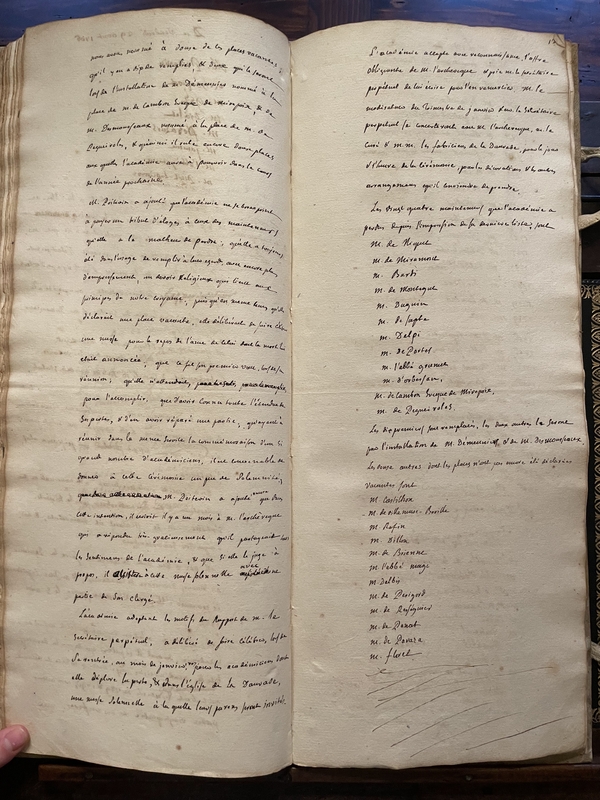 nous avons nommé à douze de les places vacantes
qu'il y en a dix de remplies, & deux qu'il le seront
lors de l'installation de M. Démeunier nommé à la
place de m. de Cambon Evêque de mirepoix, & de
m. Desmousseaux, nommé à la place de m. de
Regueiroles, & qu'ainsi il reste encore douze places
aux quelles l'académie aura à pourvoir dans le cours
de l'année prochaine.
M. Poitevin a ajouté que l'académie ne se borne point
à payer un tribut d'éloges à ceux des mainteneurs
qu'elle a le malheur de perdre, qu'elle a toujours
été dans l'usage de remplir à leur égard, avec encore plus
d'empressement, un devoir Religieux qui tient aux
principes de notre croyance, puisqu'en même tems qu'elle
déclaroit une place vacante, elle délibéroit de faire célébrer
une messe pour le repos de l'ame de celui dont la mort lui
étoit annoncée, que ce fut son premier vœu, lors de sa
réunion, qu'elle n'attendoit,
pour l'accomplir, que d'avoir connu toute l'étendue de
ses pertes, & d'en avoir réparé une partie, qu'ayant à
réunir dans la même service la commémoraison d'un si
grand nombre d'académiciens, il est convenable de
donner à cette cérémonie un peu de solemnité,
M. Poitevin a ajouté encore que dans
cette intention, il écrivit il y a un mois à m. l'archevêque
qui a répondu très gracieusement qu'il partageoit tous
les sentimens de l'académie, & que si elle le juge à
propos, il à cette messe solemnelle avec une
partie de son clergé.
L'académie adoptant les motifs du rapport de m. le
secrétaire perpétuel, a délibéré de faire célébrer, lors de
sa rentrée, au mois de janvier, pour les académiciens dont
elle déplore la perte, & dans l'église de la Daurade,
une messe solemnelle à la quelle leurs parens seront invités.
L'académie accepte avec reconnoissance l'offre
obligeante de m. l'archevêque & prie m. le secrétaire
perpétuel de lui écrire pour l'en remercier. M. le
modérateur du trimestre de janvier & m. le secrétaire
perpétuel se concerteront avec M. l'archevêque, m. le
curé & m.m. les fabriciens de la Daurade, pour le jour
& l'heure de la cérémonie, pour les décorations & les autres
arrangemens qu'il conviendra de prendre.
Les vingt quatre mainteneurs que l'académie a
perdus depuis l'impression de sa dernière liste, sont
m. de Niquet
m. de Miramont
m. Barbi
m. de Montegut
m. Daguin
m. de Saget
m. Delpi
m. de Portes
m. l'abbé gramet
m. d'orbessan,
m. de Cambon Evêque de Mirepoix,
m. de Regueiroles.
Les dix premiers sont remplacés, les deux autres le seront
par l'installation de M. Démeunier & de M. Desmousseaux.
Les douze autres dont les places n'ont pas encore été déclarées
vacantes sont
m Castilhon
m. de villemur-
m. Rafin
m. Dillon
m. de Brienne
m. l'abbé magi
m Dalbis
m. de Périgord
m. de Rességuier
m. de Panat
m. de Povaza
m. floret